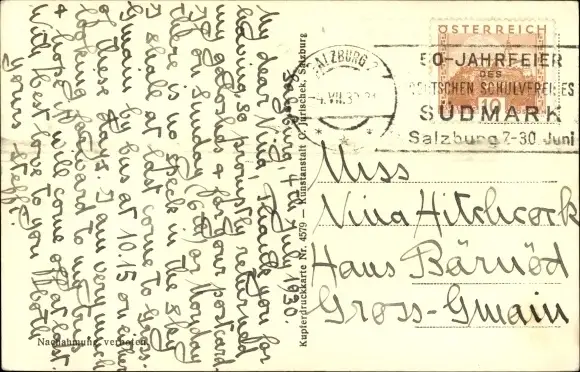 Salzburg, 4th July 1930.
My dear Nina, Thank you for
having so promptly returned
my goloshes & for your postcard.
If on Sunday (6th) or Monday
there is no speck in the sky
I shall at last come to Gross-
Gmain by bus at 10.15 on either
of these days. I am very much
looking forward to my trip
& hope it will come off at last.
With best love to you
yours
Steffi.
Nachahmung verboten.
Kupferdruckkarte Nr. 4579 – Kunstanstalt C. Jurischek, Salzburg
ÖSTERREICH
10
SALZBURG 2
4.VII.30
50-JAHRFEIER
DES
DEUTSCHEN SCHULVEREINES
SÜDMARK
Salzburg 7-30 Juni
Miss
Nina Hitchcock
Haus Bärnöd
Gross-Gmain